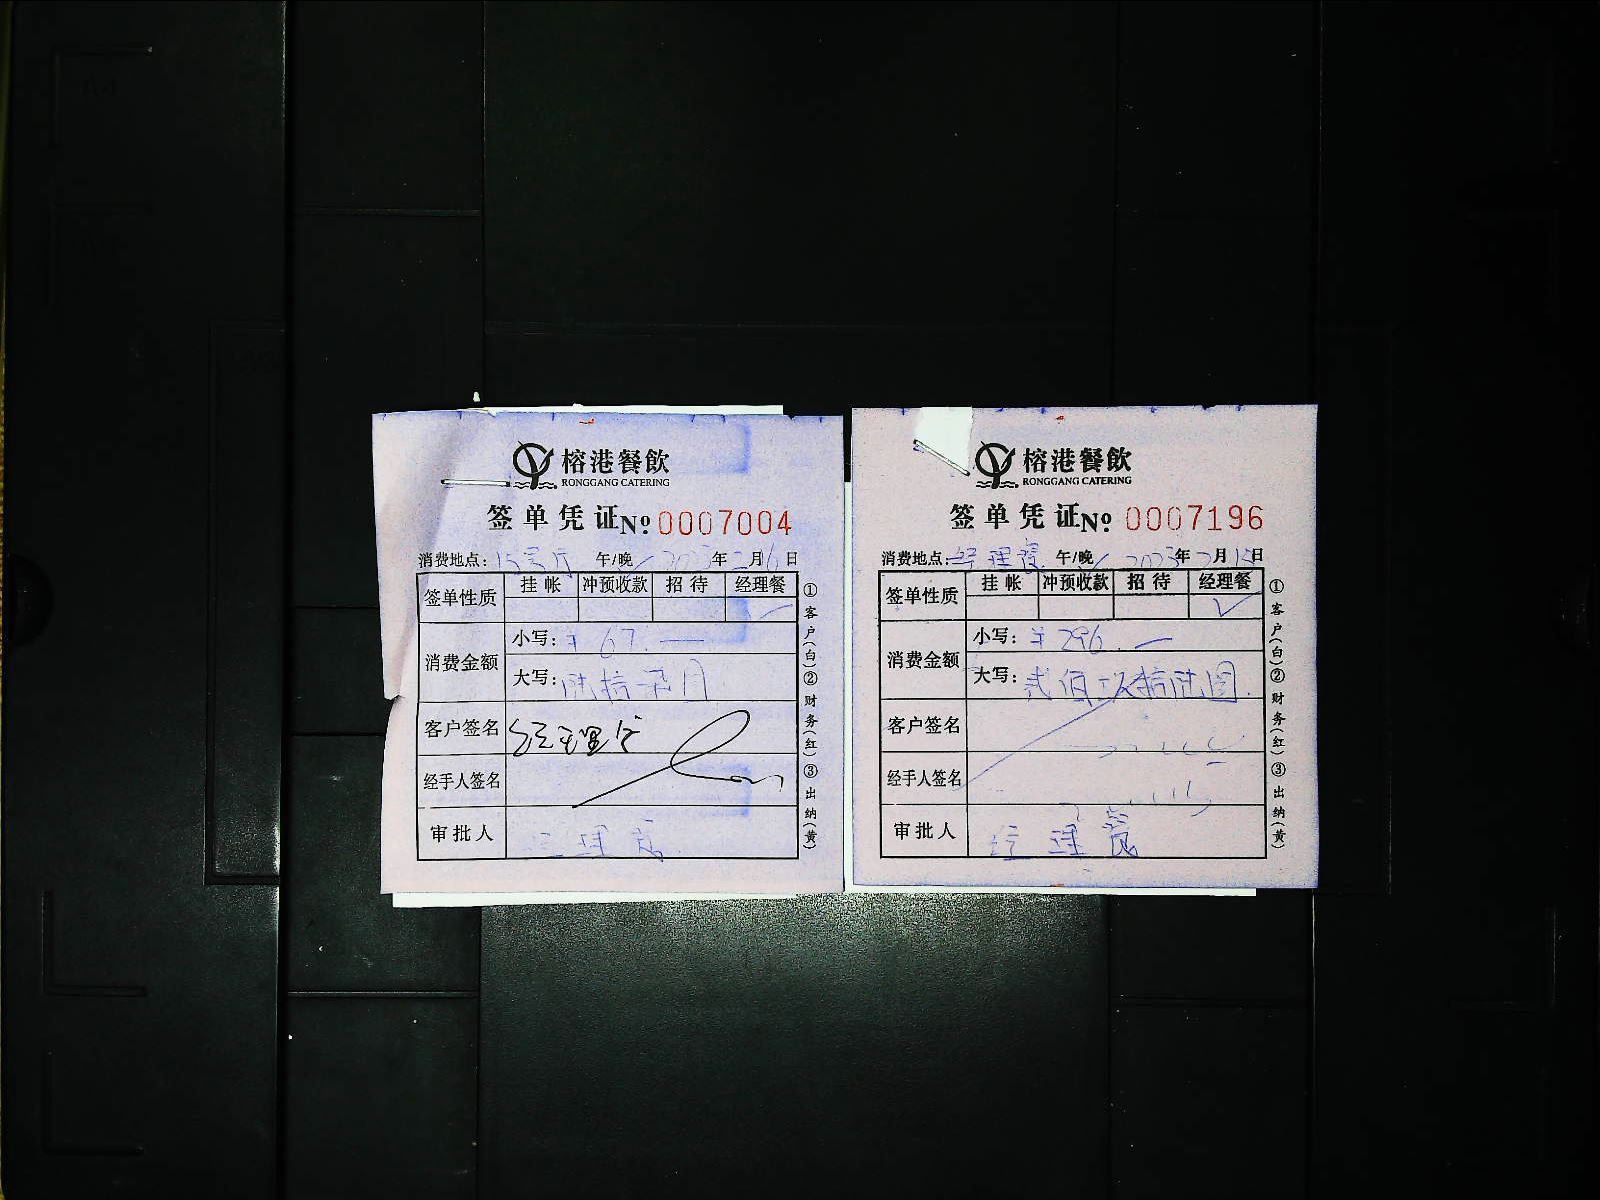 榕港餐飲
RONGGANG CATERING
签单凭证 No 0007004
消费地点: 15号厅 午/晚 2023年2月6日
签单性质 挂帐 冲预收款 招待 经理餐
✓
消费金额
小写: ¥ 67.—
大写: 陆拾柒
客户签名 经理
经手人签名
审批人 经理
①客户(白)②财务(红)③出纳(黄)
榕港餐飲
RONGGANG CATERING
签单凭证 No 0007196
消费地点: 经理餐 午/晚 2023年2月15日
签单性质 挂帐 冲预收款 招待 经理餐
✓
消费金额
小写: ¥ 296.—
大写: 贰佰玖拾陆圆
客户签名
经手人签名
审批人 经理餐
①客户(白)②财务(红)③出纳(黄)